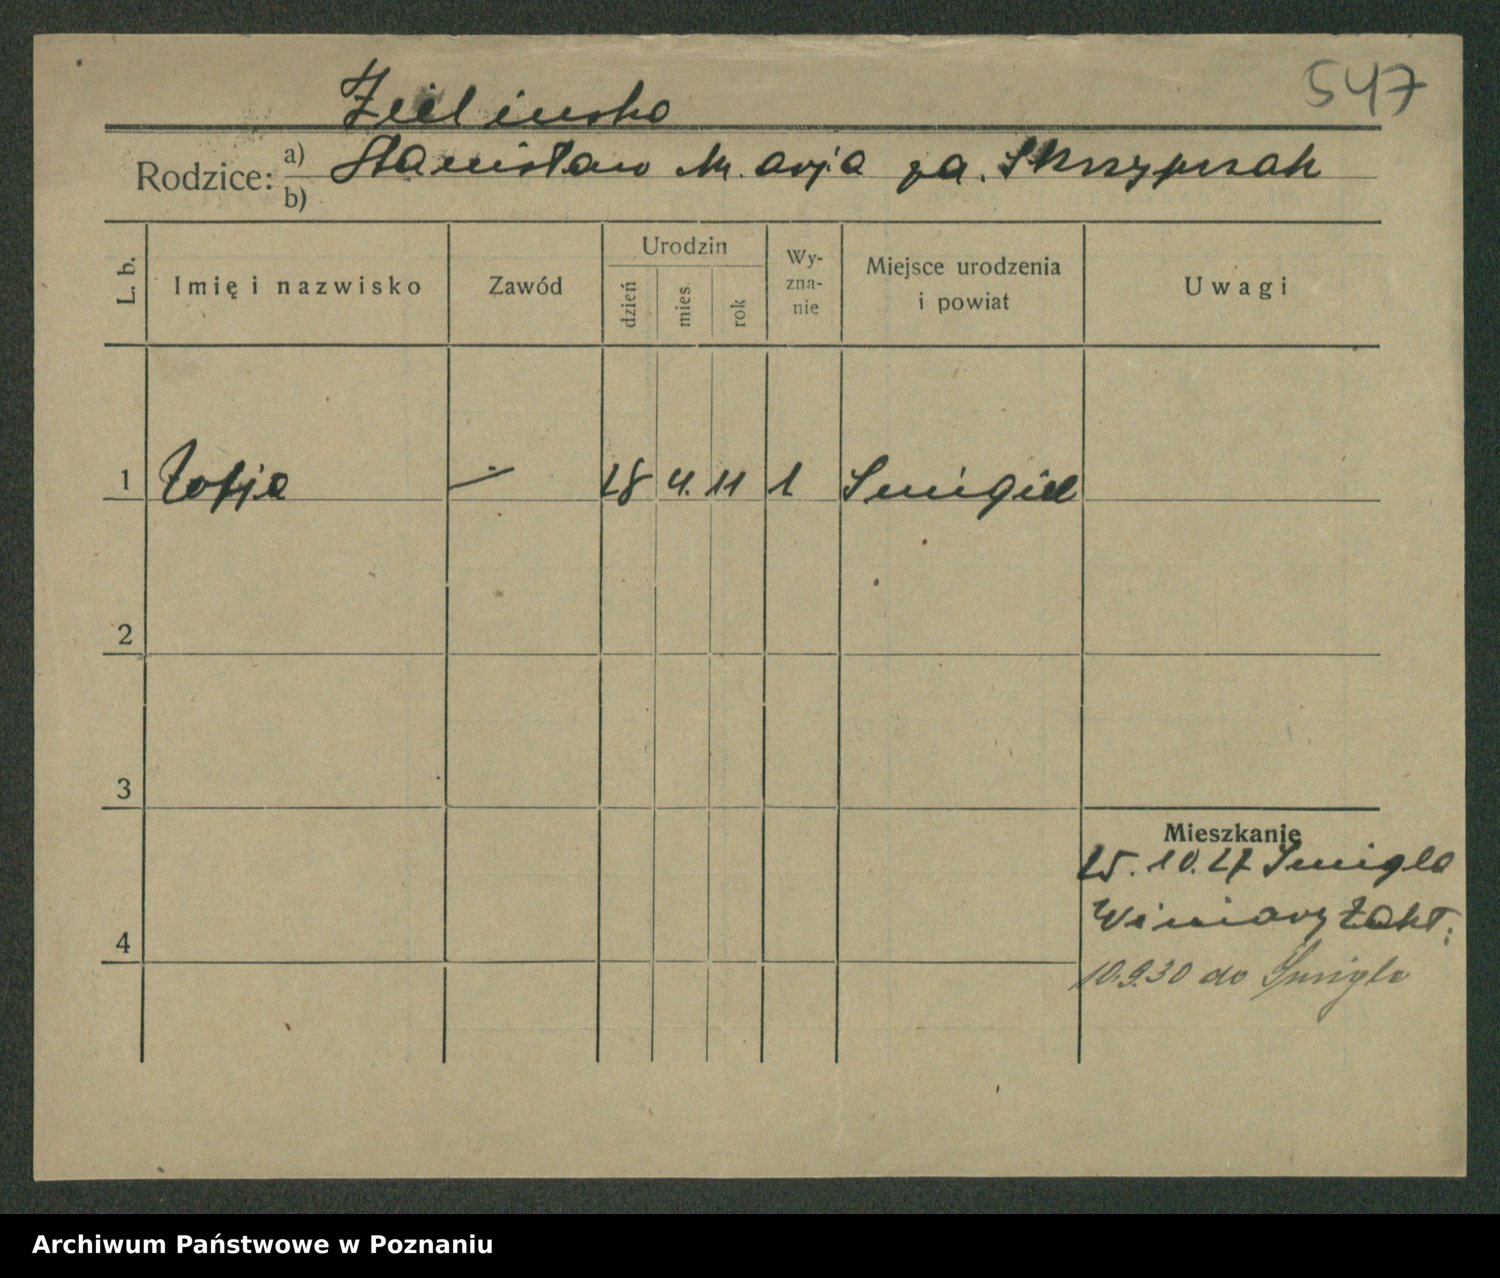 547
Zielinska
Rodzice: a) Stanisław Marja za. Skrzypczak
b)
L. b.
Imię i nazwisko
Zawód
Urodzin
dzień
mies.
rok
Wy-
zna-
nie
Miejsce urodzenia
i powiat
Uwagi
1 Zofja — 28 4. 11 1 Smigiel
2
3
Mieszkanie
25. 10. 27 Smigla
Winiary Zakł:
4
10.9.30 do Smigla
Archiwum Państwowe w Poznaniu